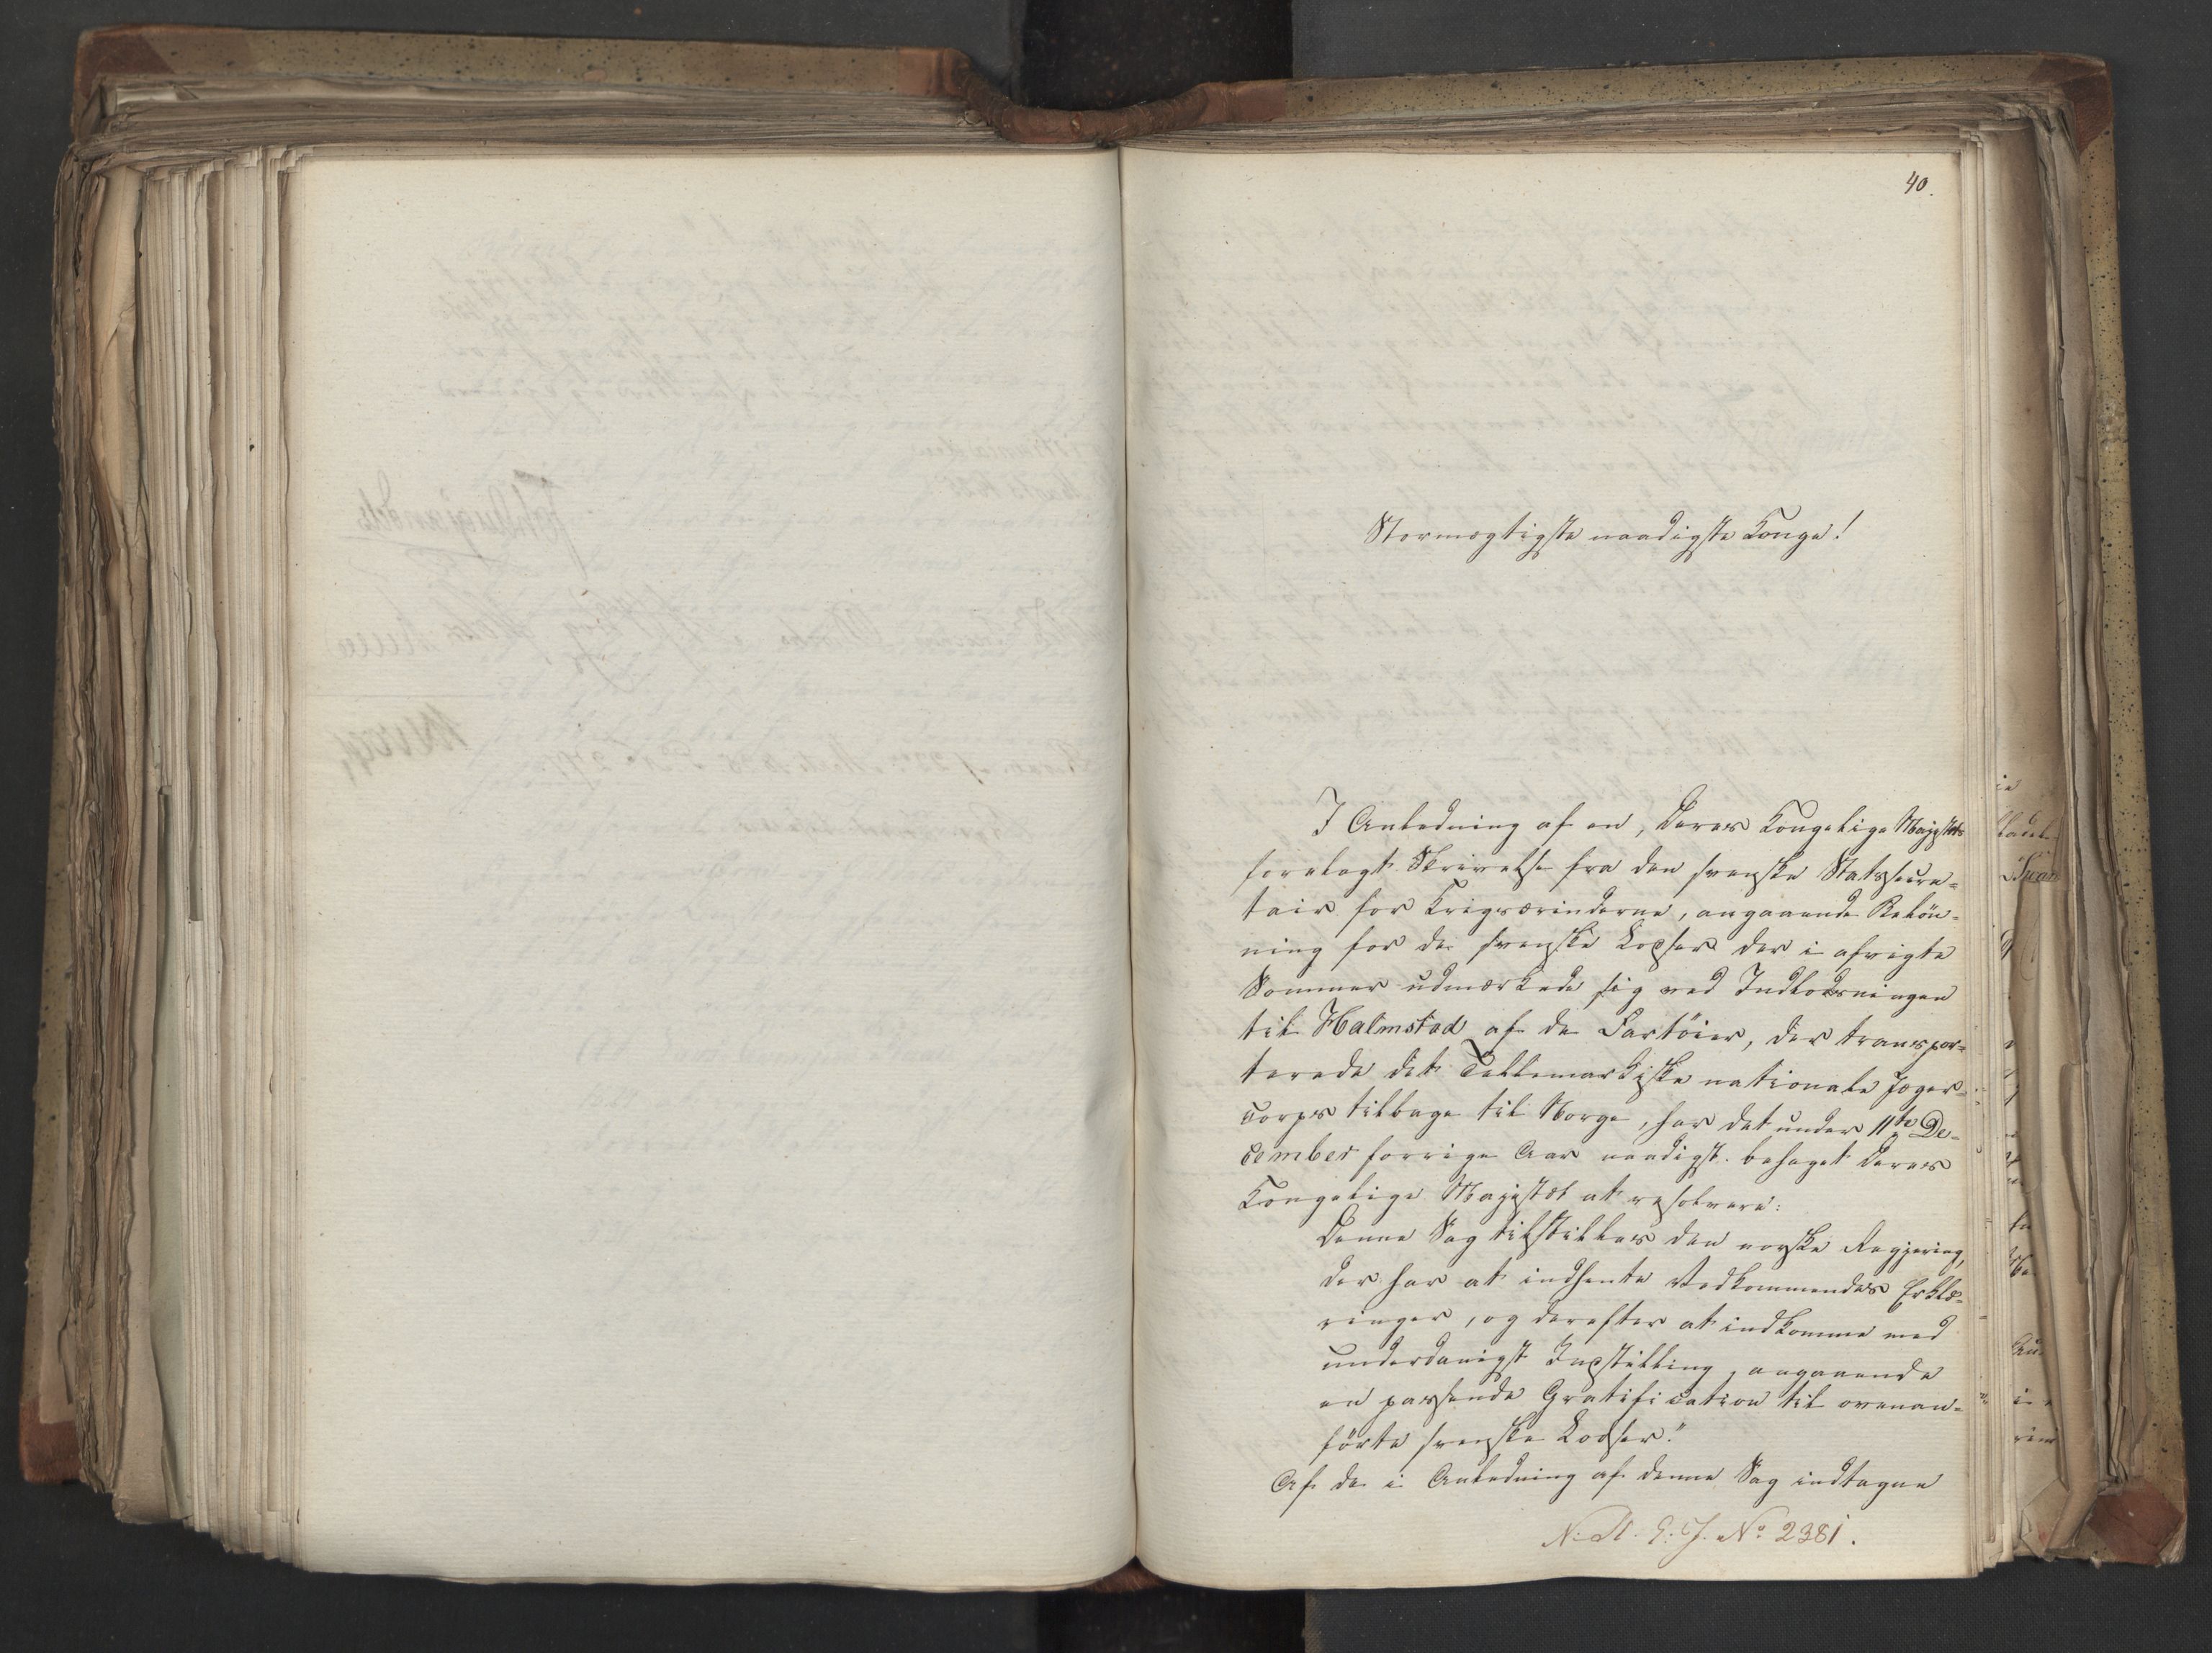 40.
Stormægtigste naadigste Konge!
I Anledning af en, Deres Kongelige Majestæts
forelagt Skrivelse fra den svenske Statssecre-
tair for Krigsærinderne, angaaende Belön-
ning for de svenske Lodser der i afvigte
Sommer udmærkede sig ved Indlodsningen
til Halmstad af de Fartöier, der transpor-
terede det Tellemarkiske nationale Jæger-
corps tilbage til Norge, har det under 11te De-
cember forrige Aar naadigst behaget Deres
Kongelige Majestæt at resolvere:
Denne Sag tilstilles den norske Regjering,
der har at indhente Vedkommendes Erklæ-
ringer, og derefter at indkomme med
underdanigst Indstilling, angaaende
en passende Gratification til ovenan-
förte svenske Lodser."
Af de i Anledning af denne Sag indtagne
N. A. E. J. No 2381.